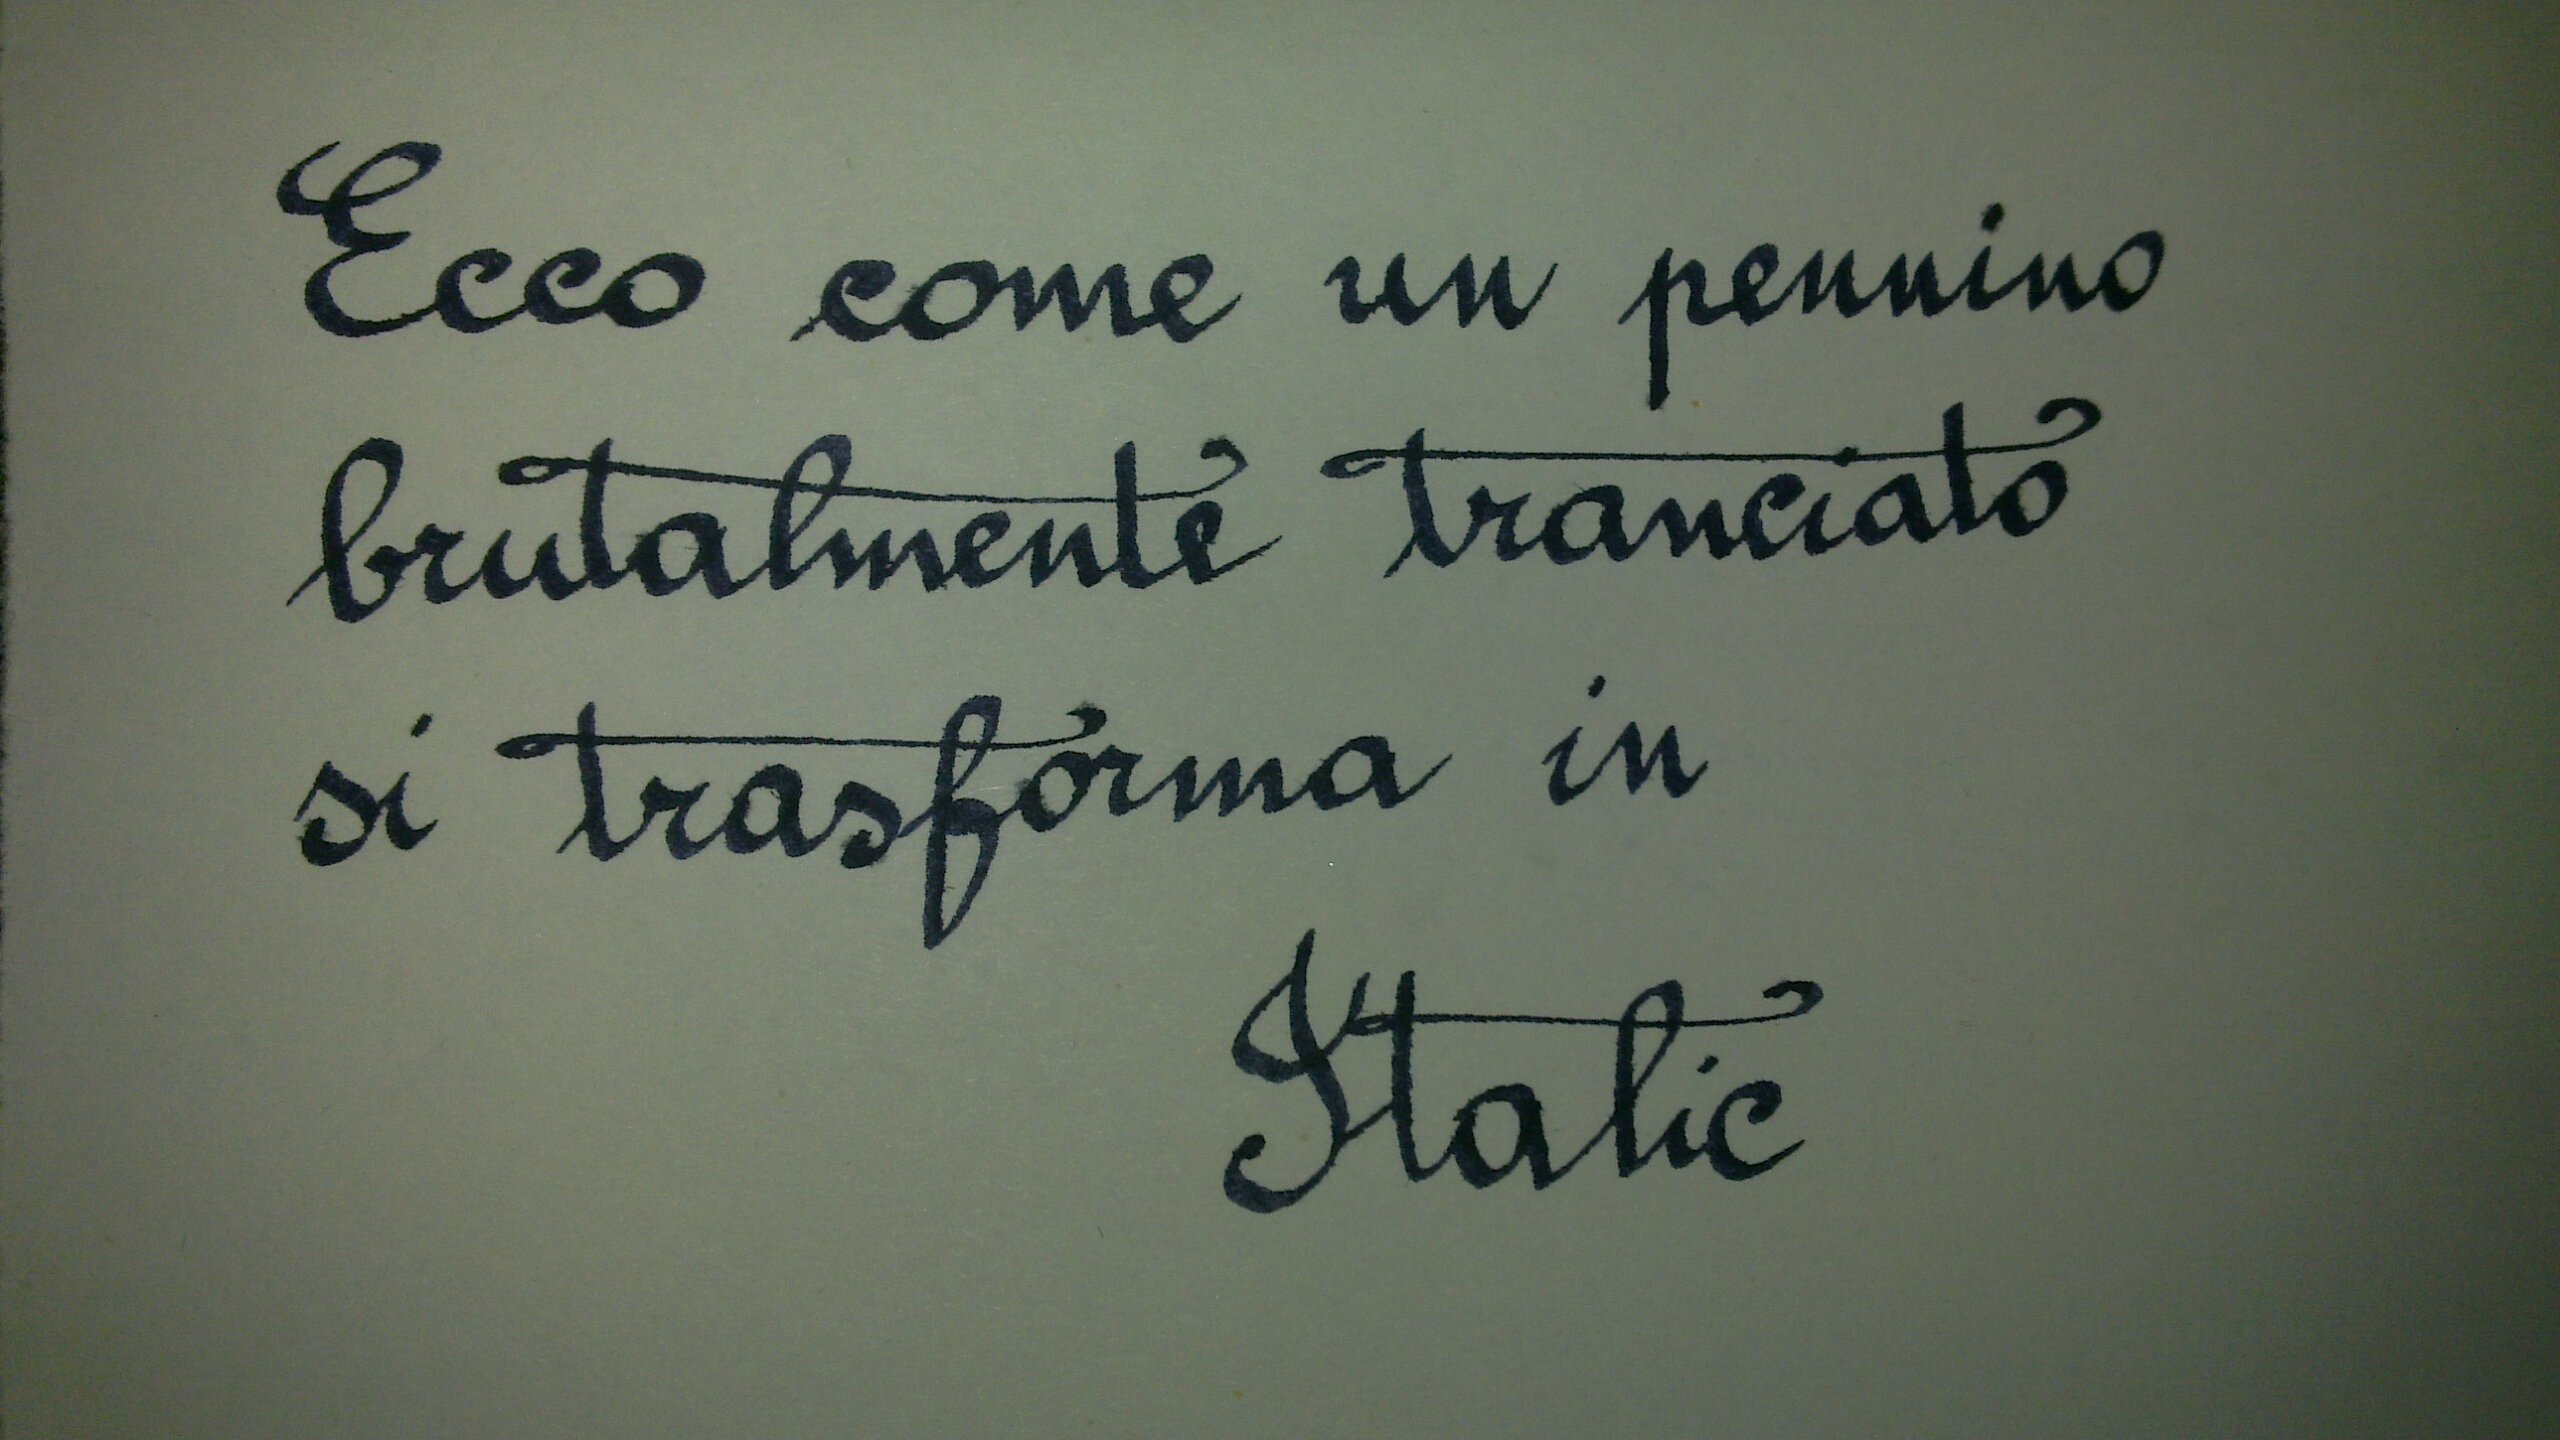 Ecco come un pennino
brutalmente tranciato
si trasforma in
Italic